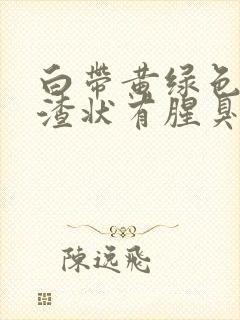 白带黄绿色
渣状有腥臭
陳逸飛